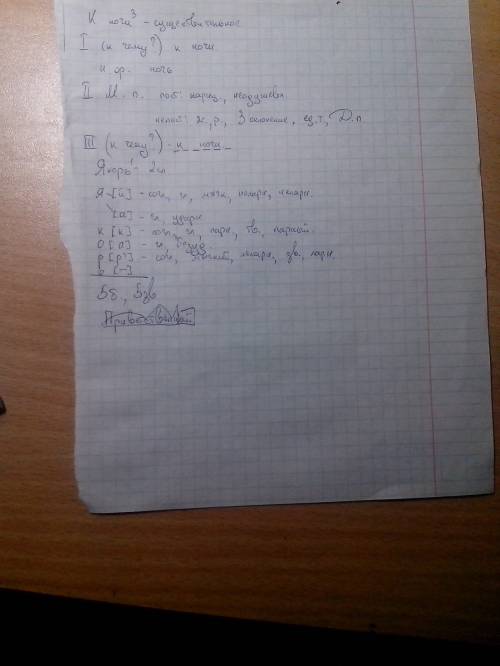 К ночи³ - существительное
I (к чему?) к ночи
н. ф. ночь
II М. п. пос: нариц, неодушевл
непост: ж, р, 3 склонение, ед. ч, Д.п
III (к чему?) - к ночи
Якорь¹ 2 сл
Я [й] - согл, зв, мягк, непарн, непарн.
[а] - гл, ударн
к [к] - согл, гл, парн, тв, парный.
о [а] - гл, безуд
р [р'] - согл, мягкий, непарн, зв, парн.
ь [-]
5б, 5зв